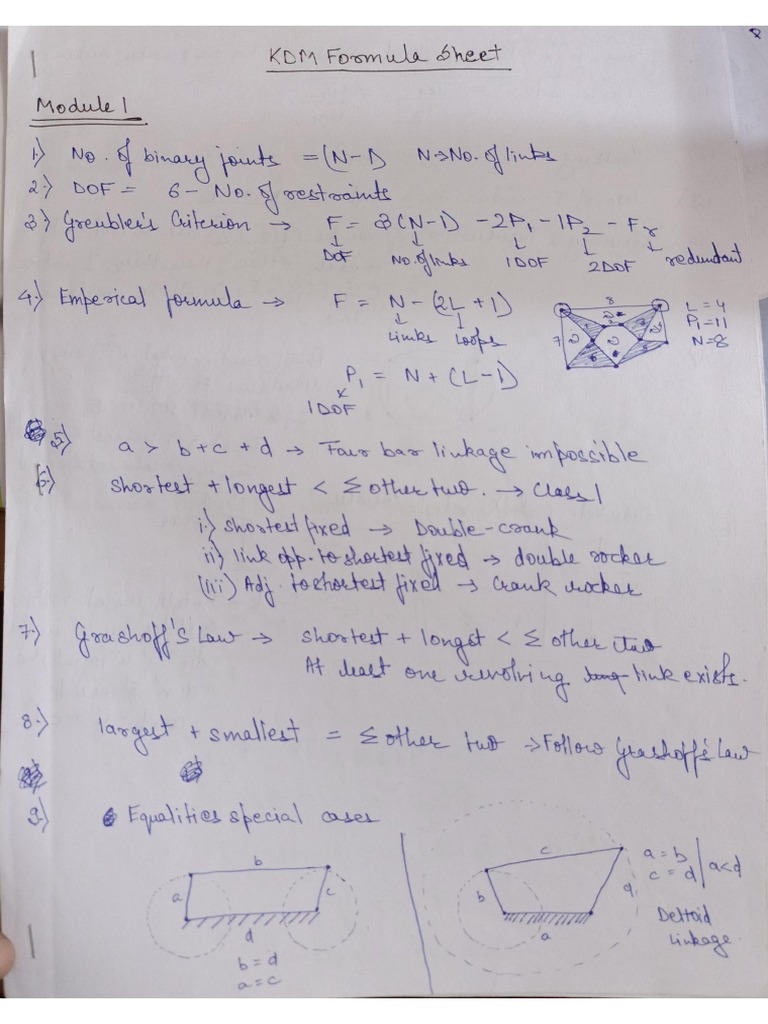 KDM Formula Sheet
Module 1
1.) No. of binary joints = (N-1) N→No. of links
2.) DOF = 6 - No. of restraints
3.) Greubler's Criterion → F = 3(N-1) - 2P₁ - 1P₂ - Fr
↓ DOF ↓ No. of links ↓ 1DOF ↓ 2DOF ↓ redundant
4.) Emperical formula → F = N - (2L + 1)
↓ Links ↓ Loops
P₁ = N + (L-1)
1DOF
8
7
L = 4
P₁ = 11
N = 8
5) a > b+c+d → Four bar linkage impossible
6.) shortest + longest < Σ other two. → Class 1
i.) shortest fixed → Double-crank
ii) link opp. to shortest fixed → double rocker
(iii) Adj. to shortest fixed → Crank rocker
7.) Grashoff's Law → shortest + longst < Σ other two
At least one revolving link exists.
8.) largest + smallest = Σ other two → Follow Grashoff's Law
9.) Equalities special cases
b
a
c
d
b = d
a = c
c
b
d
a
a = b
c = d | a<d
Deltoid
linkage